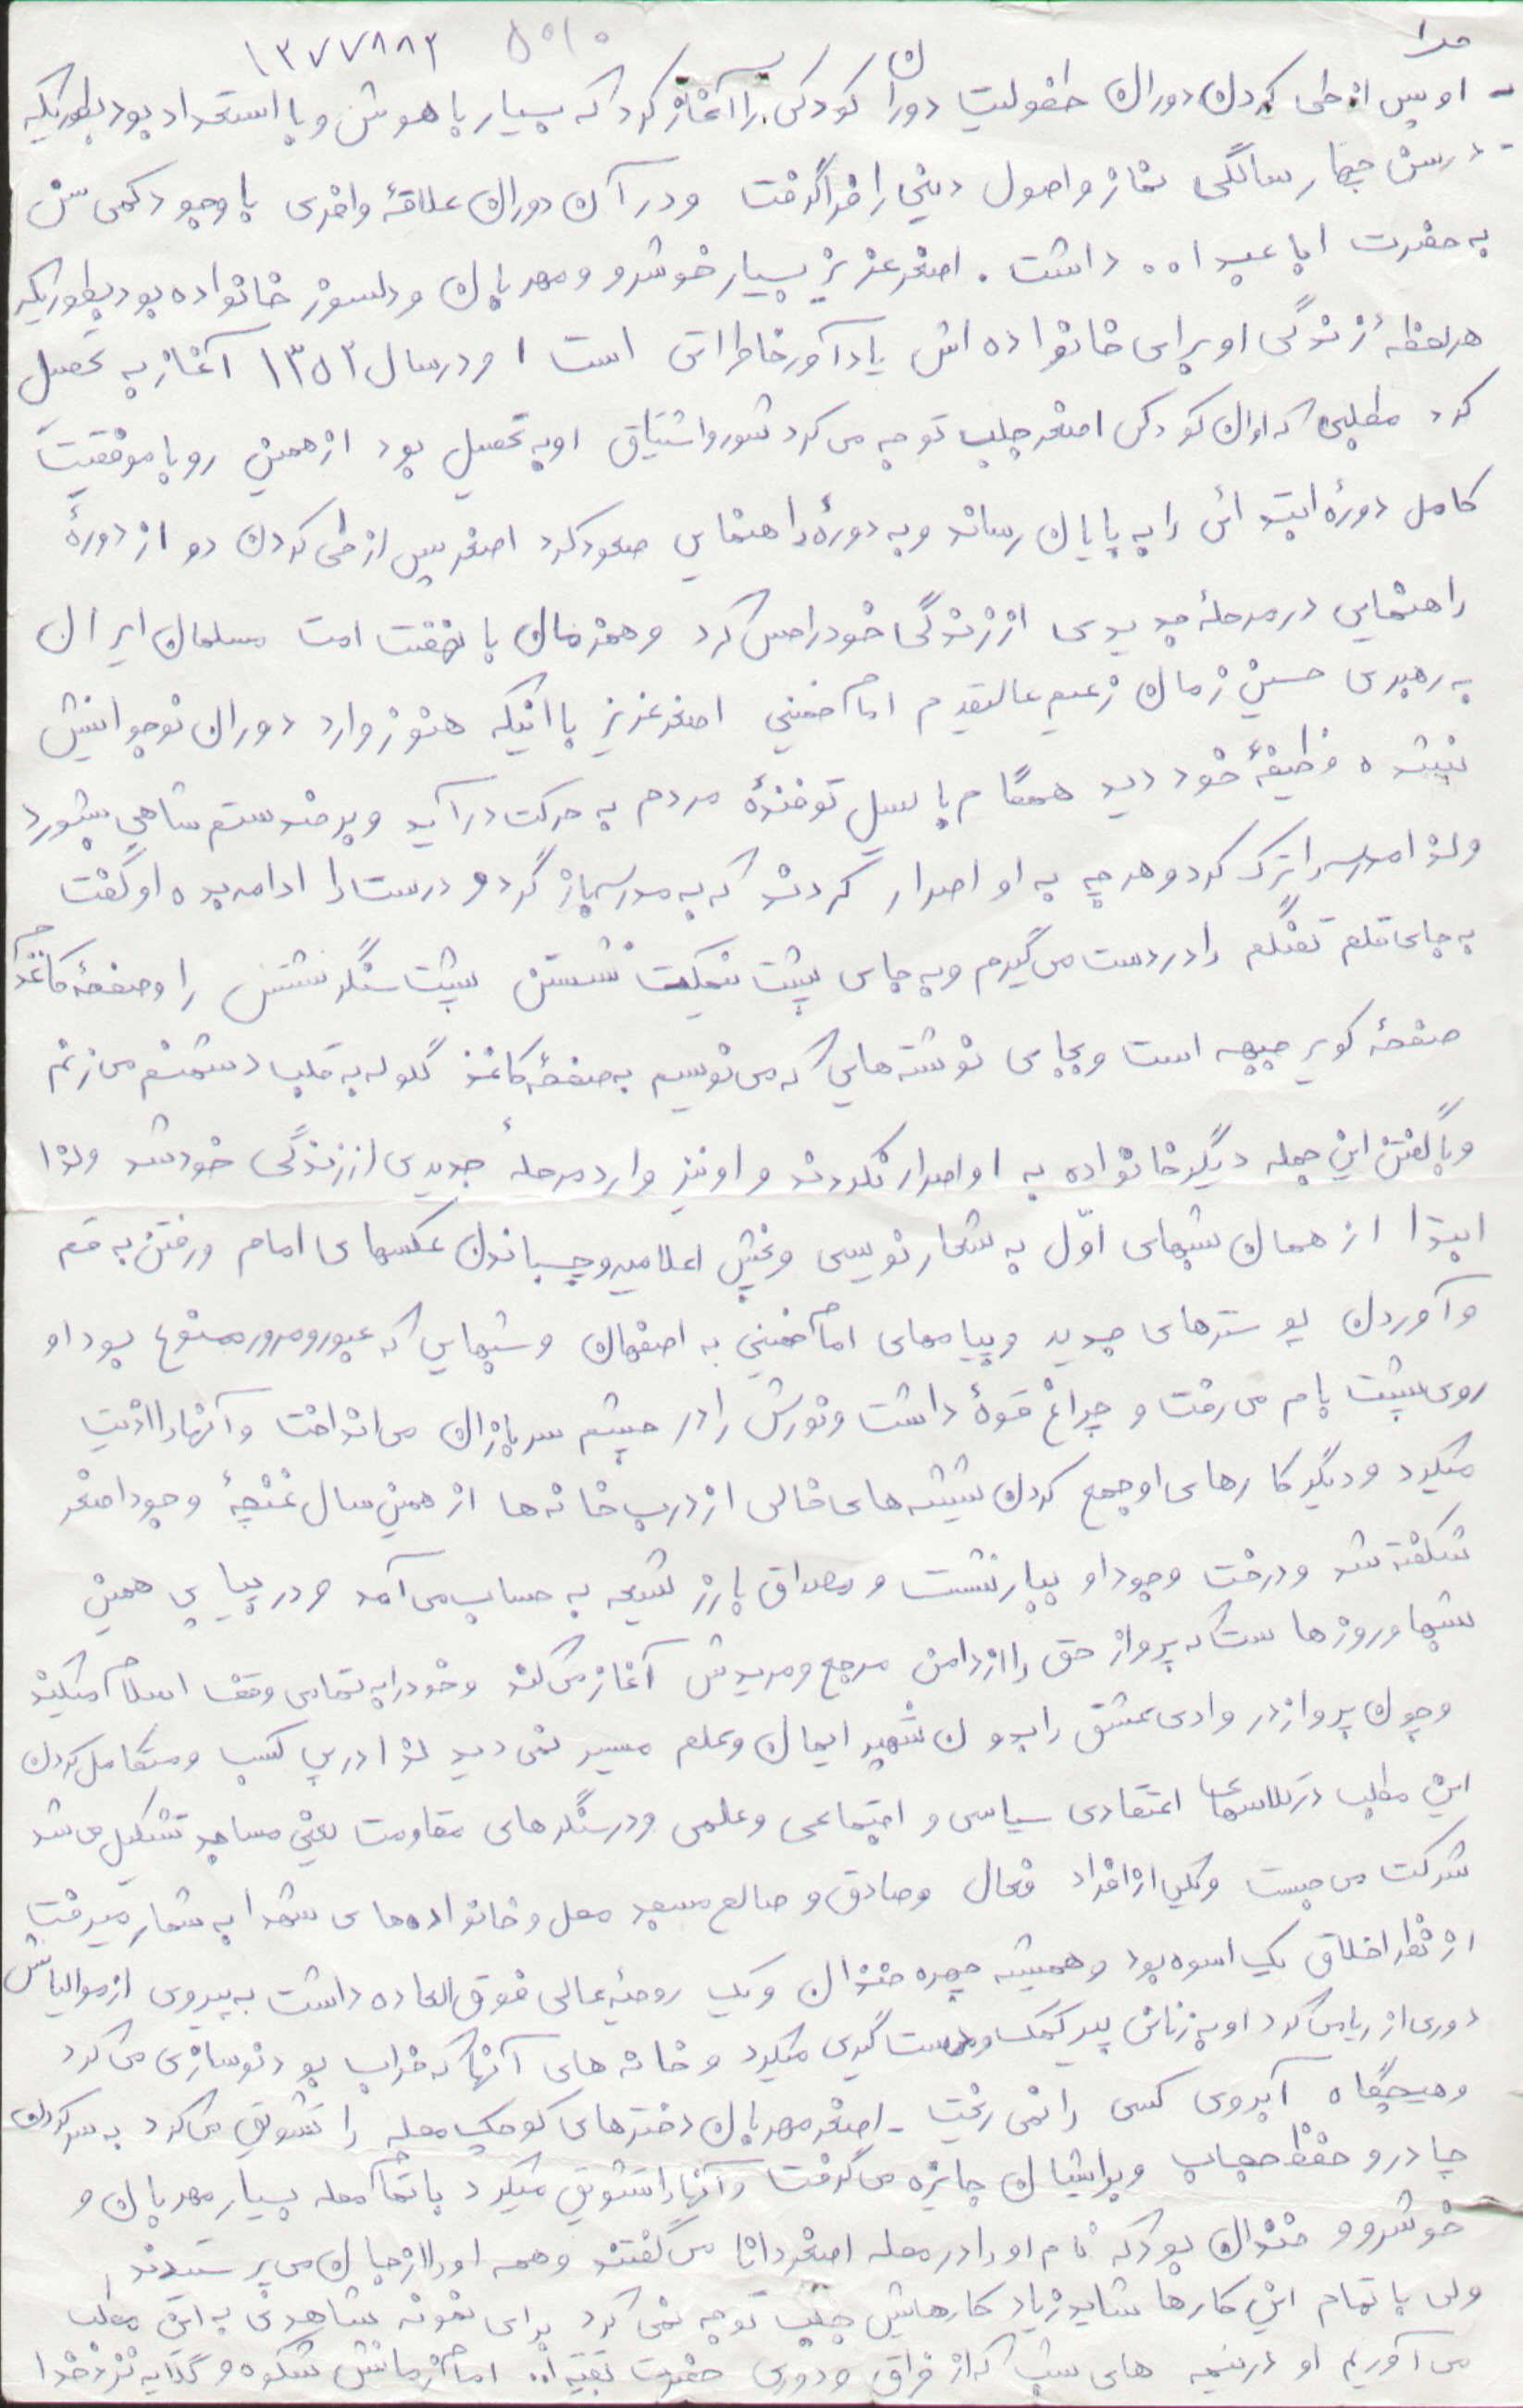 ۱۳۷۷۸۸۲ ۵۰۱۰
- او پس از طی کردن دوران طفولیت دوران کودکی را آغاز کرد که بسیار باهوش و با استعداد بود بطوریکه
درسن چهار سالگی نماز و اصول دینی را فرا گرفت و در آن دوران علاقهٔ وافری با وجود کمی سن
به حضرت ابا عبدا.. داشت . اصغر عزیز بسیار خوشرو و مهربان و دلسوز خانواده بود بطوریکه
هر لحظهٔ زندگی او برای خانواده اش یادآور خاطراتی است او درسال ۱۳۵۲ آغاز به تحصیل
کرد مطلبی که از آن کودکی اصغر جلب توجه می کرد شور و اشتیاق او به تحصیل بود از همین رو با موفقیت
کامل دورهٔ ابتدائی را به پایان رساند و به دورهٔ راهنمایی صعود کرد اصغر پس از طی کردن دو از دورهٔ
راهنمایی در مرحلهٔ جدیدی از زندگی خود را حس کرد و همزمان با نهضت امت مسلمان ایران
به رهبری حسین زمان زعیم عالیقدم امام خمینی اصغر عزیز با اینکه هنوز وارد دوران نوجوانیش
نشده وظیفهٔ خود دید همگام با سیل توفندهٔ مردم به حرکت درآید و بر ضد ستم شاهی بشورد
ولذا مدرسه را ترک کرد و هر چه به او اصرار کردند که به مدرسه باز گرد و درست را ادامه بده او گفت
به جای قلم تفنگم را در دست می گیرم و به جای پشت نیمکت نشستن پشت سنگر نشستن را و صفحهٔ کاغذم
صفحهٔ کویر جبهه است و بجای نوشته هایی که می نویسیم به صفحهٔ کاغذ گلوله به قلب دشمنم می زنم
و با گفتن این جمله دیگر خانواده به او اصرار نکردند و او نیز وارد مرحلهٔ جدیدی از زندگی خود شد ولذا
ابتدا از همان شبهای اوّل به شعار نویسی و پخش اعلامیه و چسباندن عکسهای امام و رفتن به قم
و آوردن پوسترهای جدید و پیامهای امام خمینی به اصفهان و شبهایی که عبور و مرور ممنوع بود او
روی پشت بام می رفت و چراغ قوهٔ داشت و نورش را در چشم سربازان می انداخت و آنها را اذیت
میکرد و دیگر کارهای او جمع کردن شیشه های خالی از درب خانه ها از همین سال غنچهٔ وجود اصغر
شکفته شد و درخت وجود او ببار نشست و مصداق بارز شیعه به حساب می آمد و در پیاپی همین
شبها و روزها ست که پرواز حق را از دامن مرجع و مریدش آغاز می کند و خود را به تمامی وقف اسلام میکند
و چون پرواز در وادی عشق را بدون شهپر ایمان و علم میسر نمی دید لذا در پی کسب و متکامل کردن
این مطلب در کلاسهای اعتقادی سیاسی و اجتماعی و علمی و در سنگرهای مقاومت یعنی مساجد تشکیل می شد
شرکت می جست و یکی از افراد فعال و صادق و صالح مسجد محل و خانواده های شهدا به شمار میرفت
از نظر اخلاق یک اسوه بود و همیشه چهره خندان و یک روحیه عالی فوق العاده داشت به پیروی از موالیانش
دوری از ریا می کرد او به زنان پیر کمک و دست گیری میکرد و خانه های آنها که خراب بود نوسازی می کرد
و هیچگاه آبروی کسی را نمی ریخت - اصغر مهربان دخترهای کوچک محله را تشویق می کرد به سر کردن
چادر و حفظ حجاب و برایشان جایزه می گرفت و آنها را تشویق میکرد با تمام محله بسیار مهربان و
خوشرو و خندان بود که نام او را در محله اصغر دانا می گفتند و همه او را از جان می پرستیدند
ولی با تمام این کارها شاید زیاد کارهایش جلب توجه نمی کرد برای نمونه شاهدی به این مطلب
می آوریم او در نیمه های شب که از فراق و دوری حضرت بقیه ا.. امام زمانش شکوه و گلایه نزد خدا